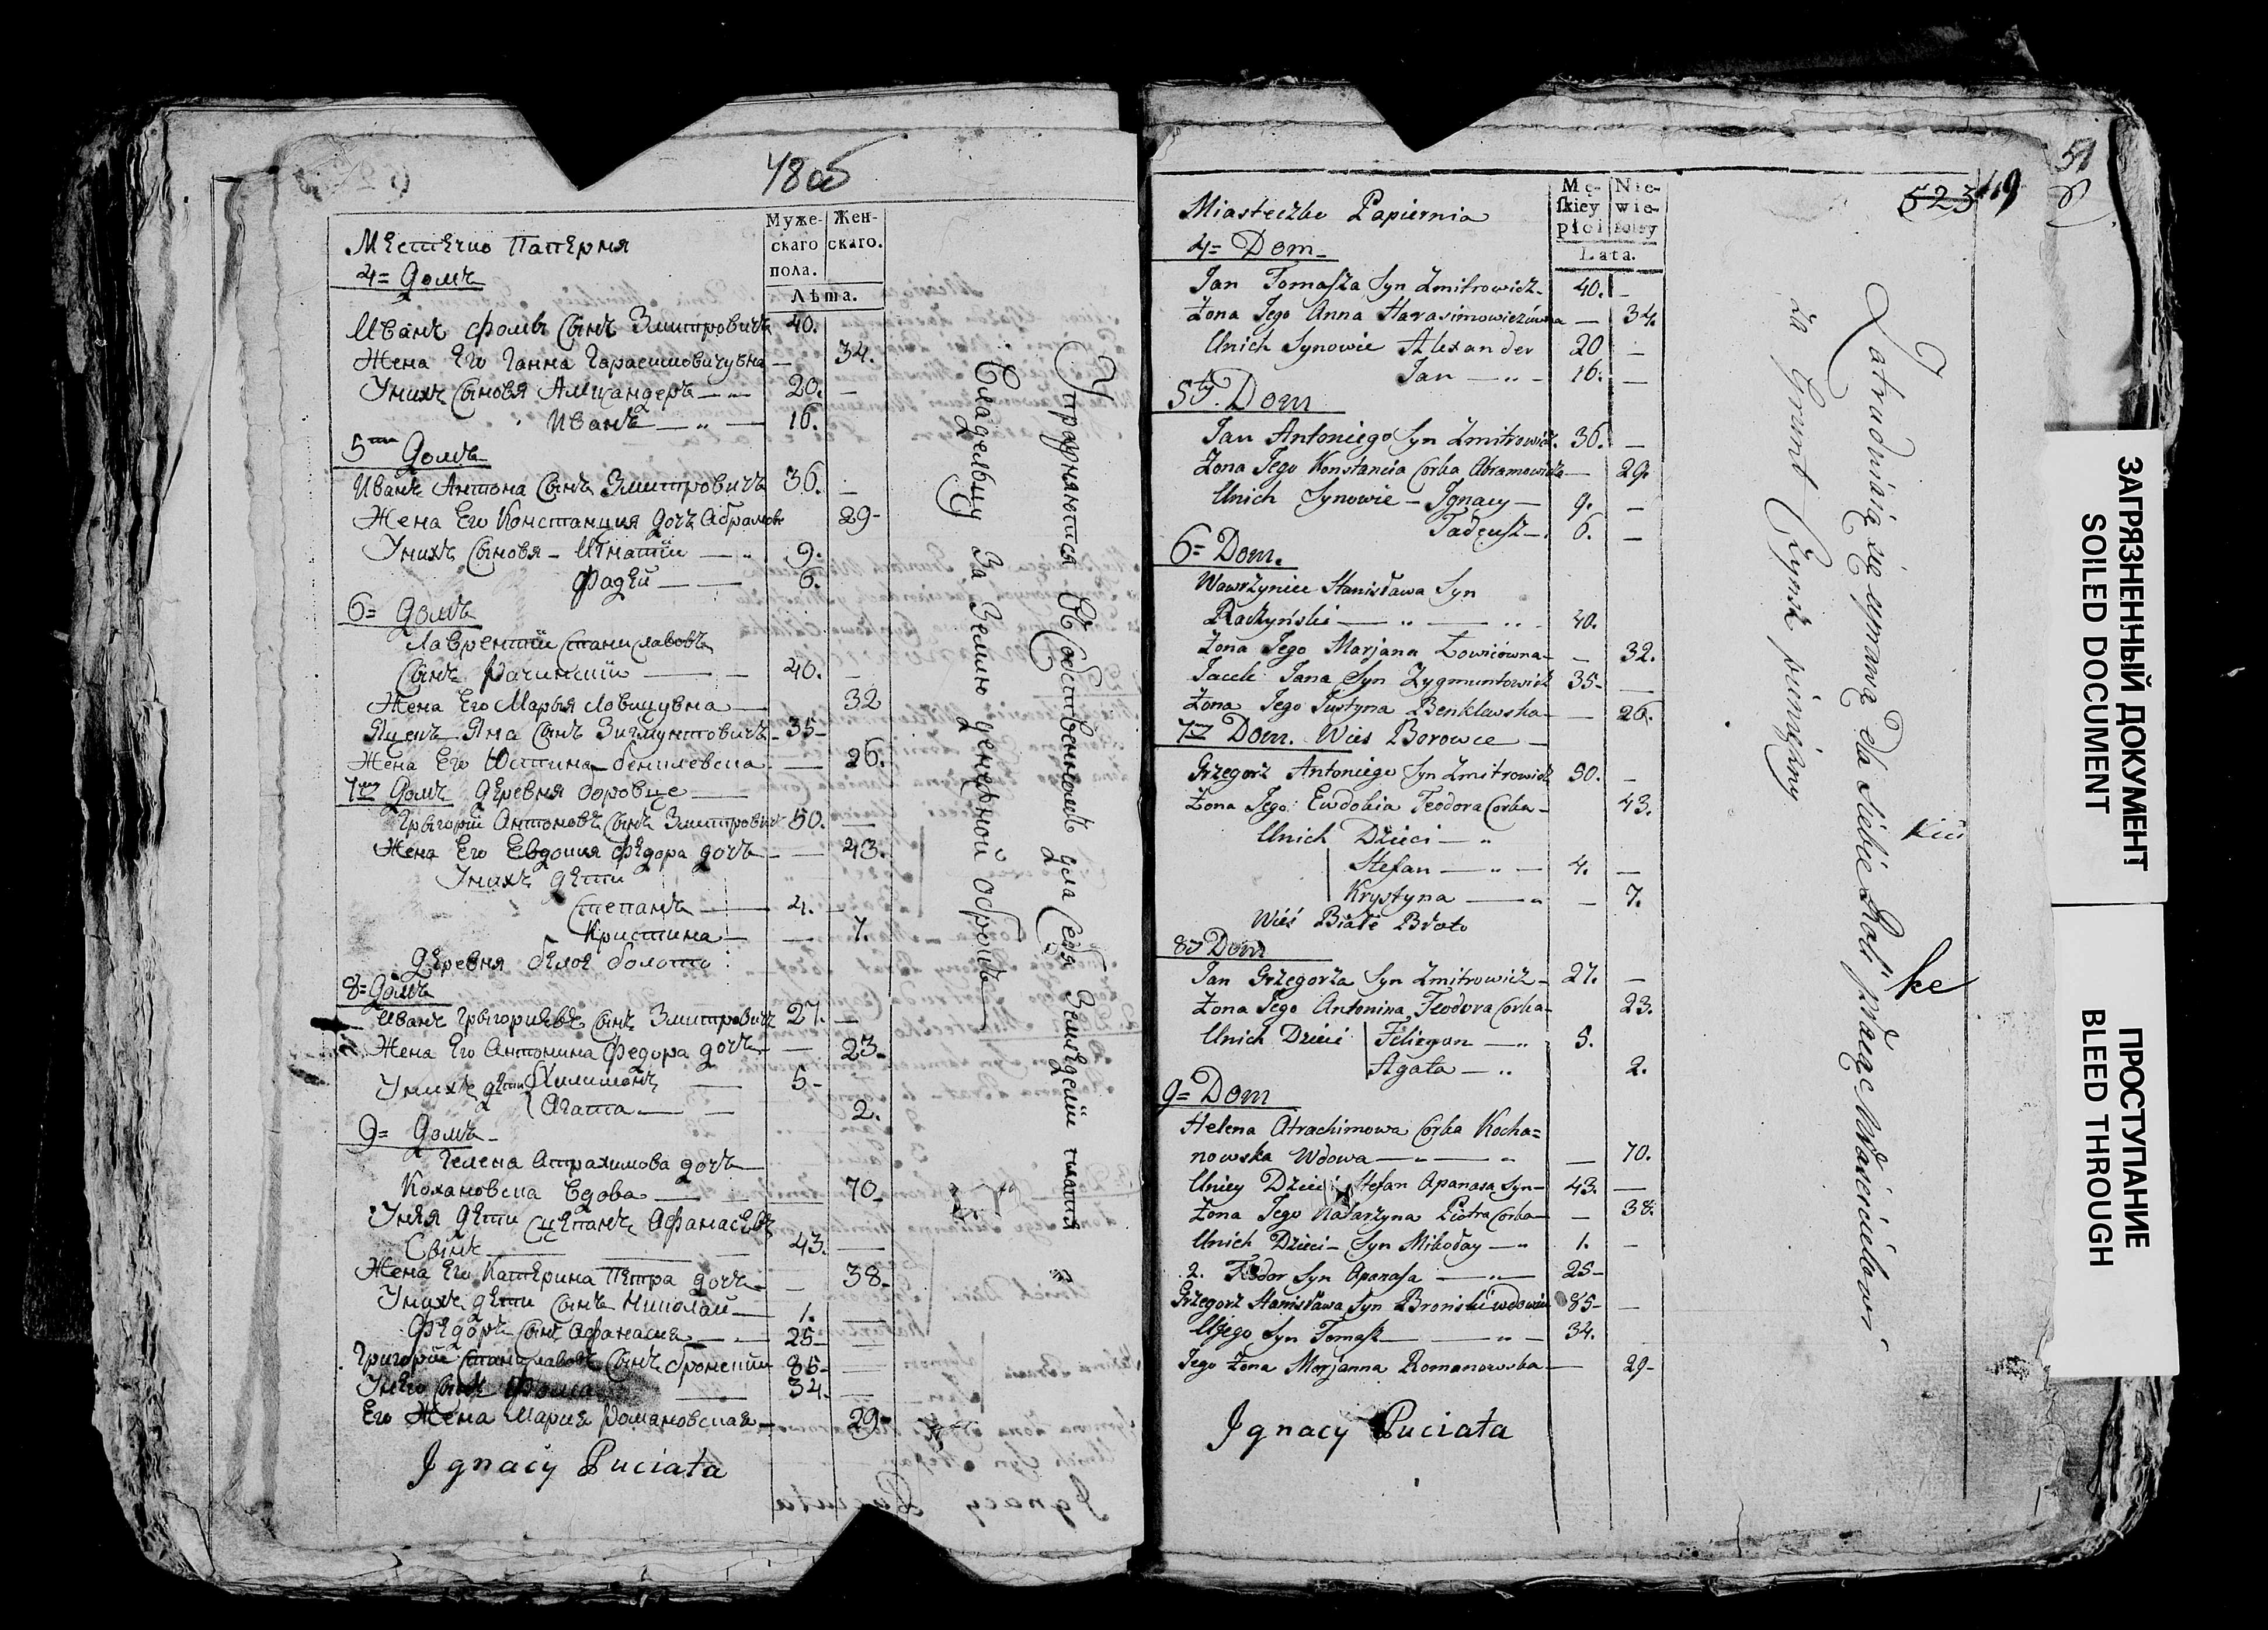 48об
Местечко Паперня
Муже-
скаго
пола.
Жен-
скаго.
Лѣта.
4= Домъ
Иванъ Фомы Сынъ Змитровичъ 40.
Жена Его Ганна Гарасимовичувна — 34.
Унихъ Сыновя Аликсандеръ — „ — 20. —
Иванъ — „ — 16.
5ти Домъ
Иванъ Антона Сынъ Змитровичъ 36. —
Жена Его Констанция дочъ Абрамов 29-
Унихъ Сыновя — Игнатiй — „ 9.
Фадей — — 6.
6= Домъ
Лаврентiй Станиславовъ
Сынъ Рачинскiй — — 40. —
Жена Его Марья Ловицувна — 32
Яцекъ Яна Сынъ Зигмунтовичъ - 35-
Жена Его Юстина Бенклевска — 26.
7my Домъ Деревня боровце —
Грыгорiй Антоновъ Сынъ Змитрович 50. —
Жена Его Евдокия Федора дочъ — 43.
Унихъ дети
Степанъ — 4. —
Кристина — — 7.
Деревня белое болото
8= Домъ
Иванъ Грыгориевъ Сынъ Змитровичъ 27. —
Жена Его Антонина Федора дочъ — 23-
Унихъ дети Филимонъ — 5-
Агата — — 2.
9= Домъ —
Гелена Атрахимова дочъ —
Кохановска Вдова — — 70-
Унея дети Сцепанъ Афанасевъ
Сынъ — — 43. —
Жена Его Катерина Петра дочъ — — 38-
Унихъ дети Сынъ Николай — 1. —
Федоръ Сынъ Афанасия — — 25- —
Григорiй Станиславовъ Сынъ бронскiй 85- —
Унего Сынъ Фома — 34. —
Его Жена Мария Романовская — 29-
Ignacy Puciata
Упражняются въ Собственномъ для Себя Земледелiи платя
Владельцу За Землю денежной оброкъ
51
523
49
Miasteczko Papiernia
Mę-
skiey
płci
Nie-
wie-
Lata.
4= Dom —
Jan Tomasza Syn Zmitrowicz — 40. —
Żona Jego Anna Harasimowiczówna — 34.
Unich Synowie Alexander 20 —
Jan — „ — 16. —
5ty. Dom
Jan Antoniego Syn Zmitrowicz. 36. —
Żona Jego Konstancia Corka Abramowicza — 29.
Unich Synowie — Ignacy — 9. —
Tadeusz — 6. —
6= Dom.
Wawrzyniec Stanisława Syn
Raczyński — „ — „ — 40.
Żona Jego Marjana Łowicówna — — 32.
Jacek Jana Syn Zygmuntowicz 35- —
Żona Jego Justyna Benklewska — — 26.
7my Dom. Wieś Borowce —
Grzegorz Antoniego Syn Zmitrowicz 50. —
Żona Jego Ewdokia Teodora Corka — 43.
Unich Dzieci — „
Stefan — „ — 4. —
Krystyna — „ — 7.
Wieś Białe Błoto
8y Dom
Jan Grzegorza Syn Zmitrowicz — 27. —
Żona Jego Antonina Teodora Corka — 23.
Unich Dzieci Filimon — „ 5.
Agata — „ 2.
9= Dom
Helena Atrachimowa Corka Kocha=
nowska Wdowa — „ — „ — 70.
Uniey Dzieci Stefan Apanasa Syn — 43. —
Żona Jego Katarzyna Piotra Corka — — 38.
Unich Dzieci — Syn Mikołay — „ 1. —
2. Fiodor Syn Apanasa — „ — 25-
Grzegorz Stanisława Syn Broński wdowiec 85- —
Ujego Syn Tomasz — „ — 34.
Jego Żona Marjanna Romanowska — 29-
Ignacy Puciata
Zatrudniają się uprawą dla siebie Roli płacąc Właścicielowi
za Grunt Czynsz pieniężny
ЗАГРЯЗНЕННЫЙ ДОКУМЕНТ
SOILED DOCUMENT
ПРОСТУПАНИЕ
BLEED THROUGH